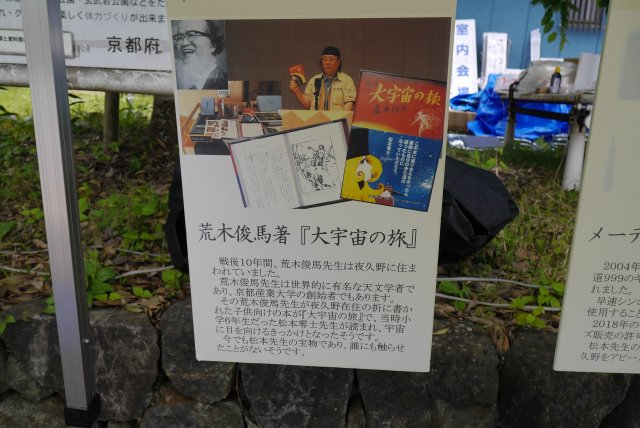 京都府
室内会場
大宇宙の旅
荒木俊馬
荒木俊馬著『大宇宙の旅』
戦後10年間、荒木俊馬先生は夜久野に住ま
われていました。
荒木俊馬先生は世界的に有名な天文学者で
あり、京都産業大学の創始者でもあります。
その荒木俊馬先生が夜久野在住の折に書か
れた子供向けの本が『大宇宙の旅』で、当時小
学6年生だった松本零士先生が読まれ、宇宙
に目を向けるきっかけとなったそうです。
今でも松本先生の宝物であり、誰にも触らせ
たことがないそうです。
メーテ
2004年
道999のキ
れました。
早速シン
使用すること
2018年の
ズ販売の許
松本先生の
久野をアピー